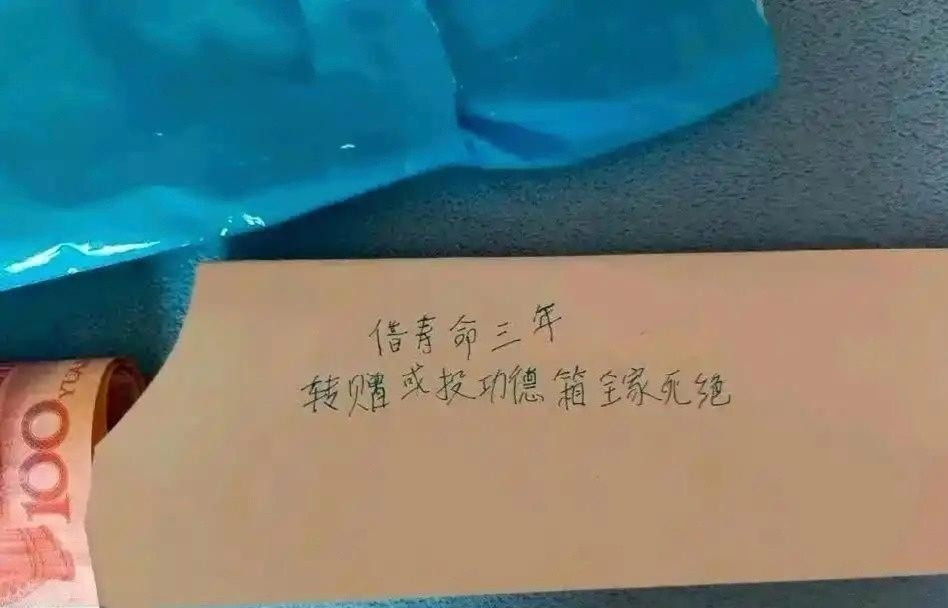 借寿命三年
转赠或投功德箱全家死绝
100
YUAN